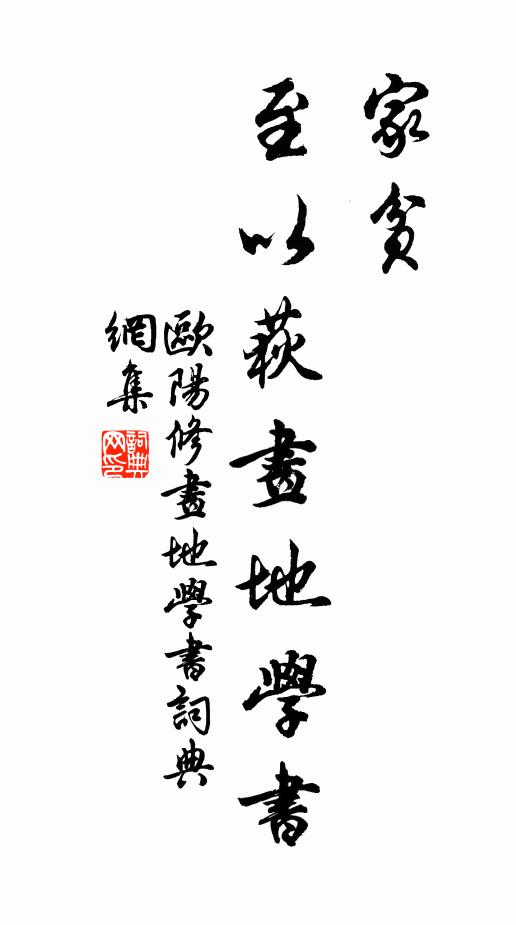 家貧
至以荻畫地學書
歐陽修畫地學書詞典
網集
詞典
网印